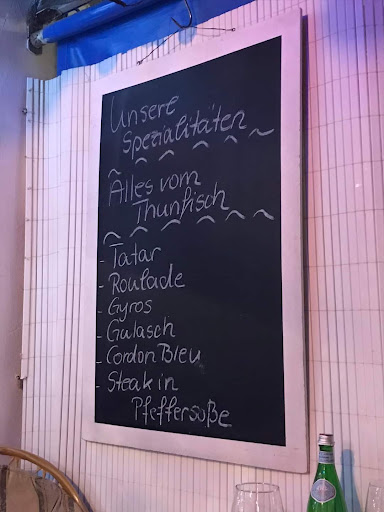 Unsere
Spezialitäten
Alles vom
Thunfisch
- Tatar
- Roulade
- Gyros
- Gulasch
- Cordon Bleu
- Steak in
Pfeffersoße